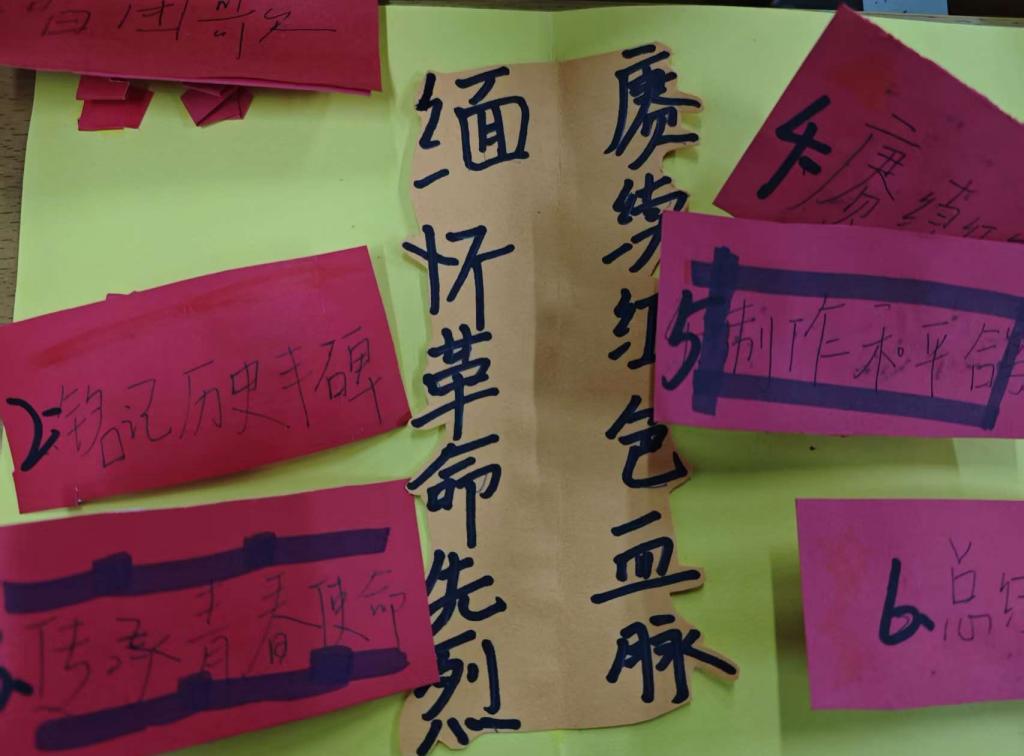 唱团歌
缅怀革命先烈
赓续红色血脉
2、铭记历史丰碑
传承青春使命
4、赓续红
5、制作和平鸽
6、总结